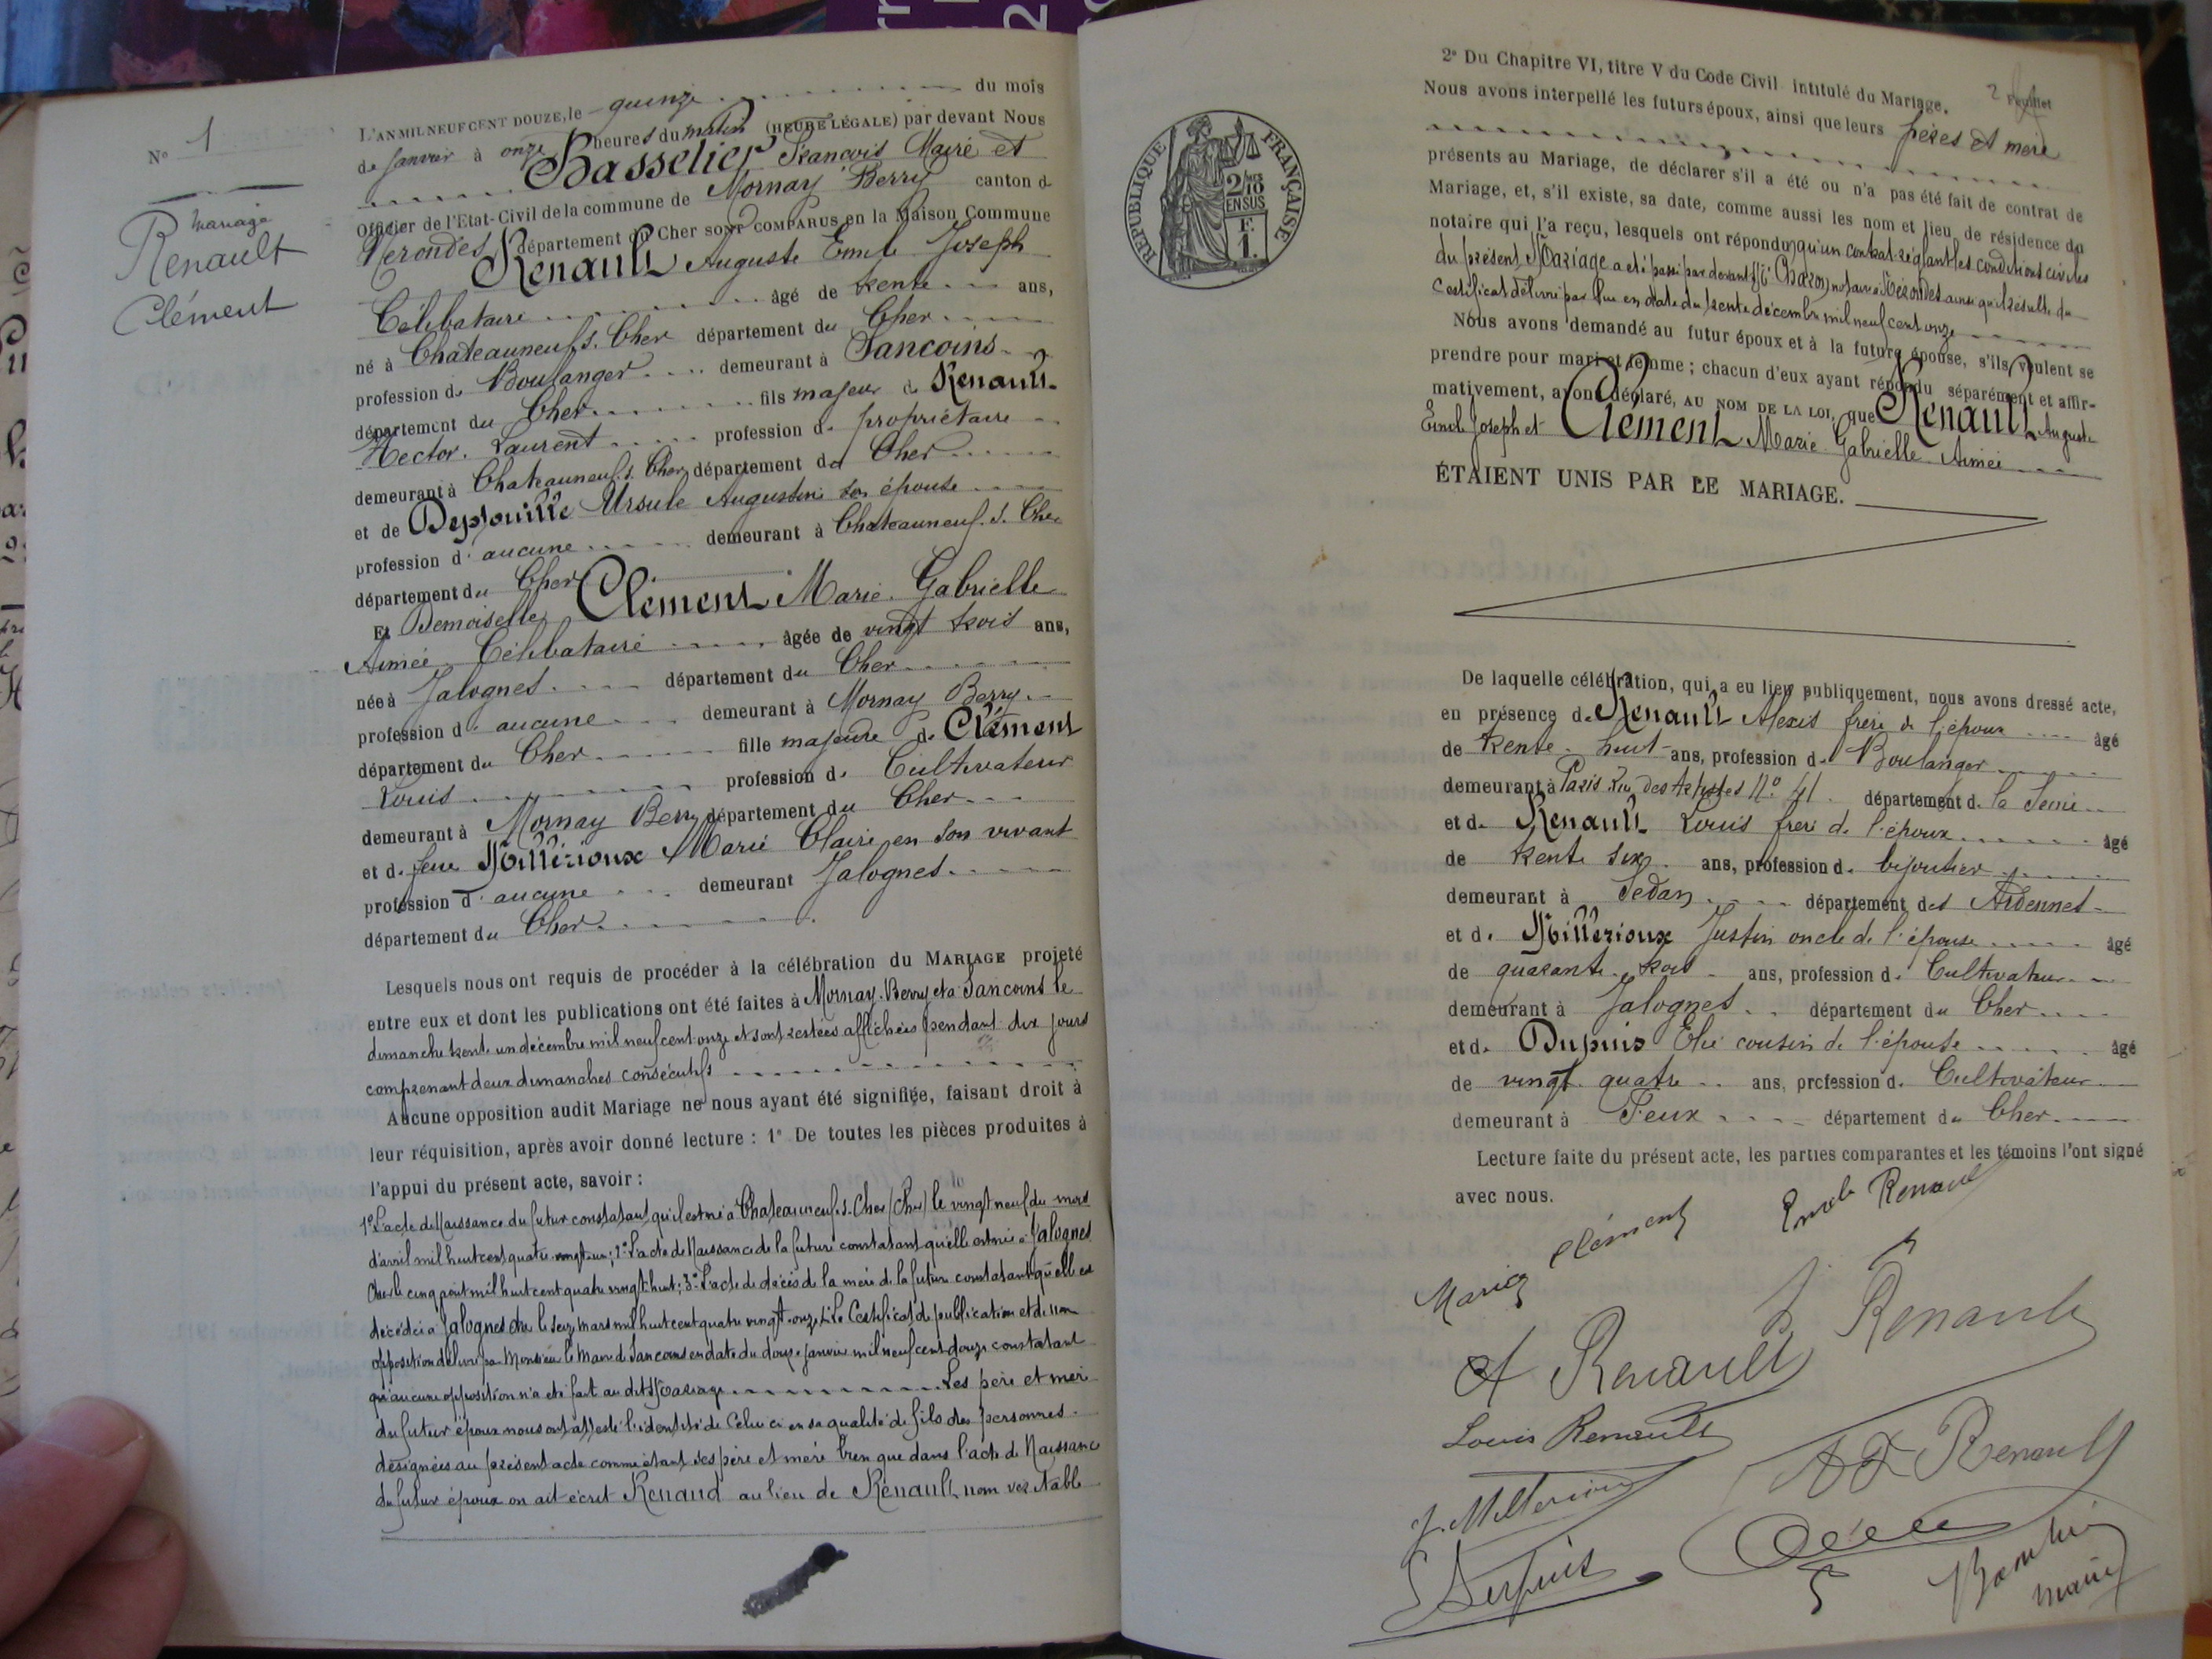 N° 1
Mariage
Renault
Clément
L'AN MIL NEUF CENT DOUZE, le quinze du mois
de Janvier à onze heures du matin (HEURE LÉGALE) par devant Nous
Basselier François Maire et
Officier de l'Etat-Civil de la commune de Mornay Berry canton d
Nérondes, département du Cher SONT COMPARUS en la Maison Commune
Renault Auguste Emile Joseph
Célibataire âgé de trente ans,
né à Chateauneuf s. Cher département du Cher
profession de Boulanger demeurant à Sancoins
département du Cher fils majeur de Renault
Hector Laurent profession de propriétaire
demeurant à Chateauneuf s. Cher département du Cher
et de Depouille Ursule Augustine son épouse
profession d'aucune demeurant à Chateauneuf s. Cher
département du Cher
Et Demoiselle Clément Marie Gabrielle
Aimée Célibataire âgée de vingt trois ans,
née à Jalognes département du Cher
profession d'aucune demeurant à Mornay Berry
département du Cher fille majeure de Clément
Louis profession de Cultivateur
demeurant à Mornay Berry département du Cher
et de feue Millérioux Marie Claire en son vivant
profession d'aucune demeurant Jalognes
département du Cher
Lesquels nous ont requis de procéder à la célébration du MARIAGE projeté
entre eux et dont les publications ont été faites à Mornay-Berry et à Sancoins le
dimanche trente un décembre mil neuf cent onze et sont restées affichées pendant dix jours
comprenant deux dimanches consécutifs
Aucune opposition audit Mariage ne nous ayant été signifiée, faisant droit à
leur réquisition, après avoir donné lecture : 1° De toutes les pièces produites à
l'appui du présent acte, savoir :
1° L'acte de Naissance du futur constatant qu'il est né à Chateauneuf-s-Cher (Cher) le vingt neuf du mois
d'avril mil huit cent quatre vingt un; 2° L'acte de Naissance de la future constatant qu'elle est née à Jalognes
Cher le cinq août mil huit cent quatre vingt huit; 3° L'acte de décès de la mère de la future constatant qu'elle est
décédée à Jalognes Cher le seize mars mil huit cent quatre vingt onze; 4° Le Certificat de publication et de non
opposition délivré par Monsieur le Maire de Sancoins en date du douze janvier mil neuf cent douze constatant
qu'aucune opposition n'a été fait au dit Mariage Les père et mère
du futur époux nous ont attesté l'identité de Celui ci en sa qualité de fils des personnes
désignées au présent acte comme étant ses père et mère bien que dans l'acte de Naissance
du futur époux on ait écrit Renaud au lieu de Renault nom véritable
2 Feuillet
2° Du Chapitre VI, titre V du Code Civil intitulé du Mariage.
Nous avons interpellé les futurs époux, ainsi que leurs pères et mère
présents au Mariage, de déclarer s'il a été ou n'a pas été fait de contrat de
Mariage, et, s'il existe, sa date, comme aussi les nom et lieu de résidence du
notaire qui l'a reçu, lesquels ont répondu qu'un contrat réglant les conditions civiles
du présent Mariage a été passé par devant Mt notaire à Nérondes ainsi qu'il résulte du
Certificat délivré par lui en date du trente décembre mil neuf cent onze
Nous avons demandé au futur époux et à la future épouse, s'ils veulent se
prendre pour mari et femme ; chacun d'eux ayant répondu séparément et affir-
mativement, avons déclaré, AU NOM DE LA LOI, que Renault Auguste
Emile Joseph et Clément Marie Gabrielle Aimée
ÉTAIENT UNIS PAR LE MARIAGE.
RÉPUBLIQUE FRANÇAISE
2/10 EN SUS
F.
1.
De laquelle célébration, qui a eu lieu publiquement, nous avons dressé acte,
en présence de Renault Alexis frère de l'époux âgé
de trente-huit ans, profession de Boulanger
demeurant à Paris rue des N° 41 département de la Seine
et de Renault Louis frère de l'époux âgé
de trente six ans, profession de bijoutier
demeurant à Sedan département des Ardennes
et de Millérioux Justin oncle de l'épouse âgé
de quarante-trois ans, profession de Cultivateur
demeurant à Jalognes département du Cher
et de Dupuis Elie cousin de l'épouse âgé
de vingt quatre ans, profession de Cultivateur
demeurant à Feux département du Cher
Lecture faite du présent acte, les parties comparantes et les témoins l'ont signé
avec nous.
Marie Clément Emile Renault
A Renault Renault
Louis Renault Renault
J. Millerioux
E Dupuis
maire